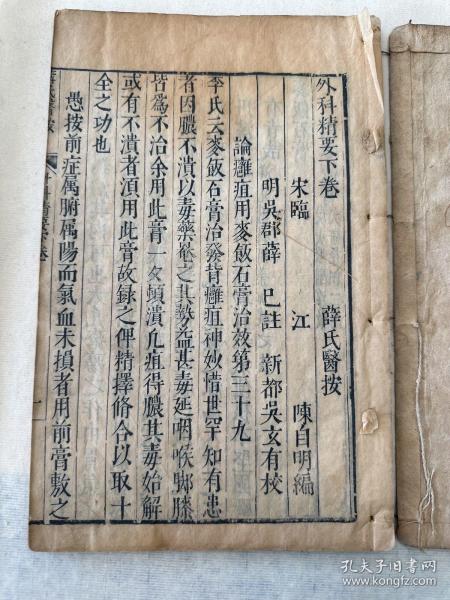 外科精要下卷 薛氏醫按
宋臨 江 陳自明編
明吳郡薛 已註 新都吳玄有校
論癰疽用麥飯石膏治效第三十九
李氏云麥飯石膏治發背癰疽神妙惜世罕知有患
者因膿不潰以毒藥發之其勢益甚毒延咽喉腳膝
皆爲不治余用此膏一夂頃潰凢疽得膿其毒始解
或有不潰者湏用此膏故録之俾精擇脩合以取十
全之功也
愚按前症属腑属陽而氣血未損者用前膏敷之
孔夫子旧书网
www.kongfz.com